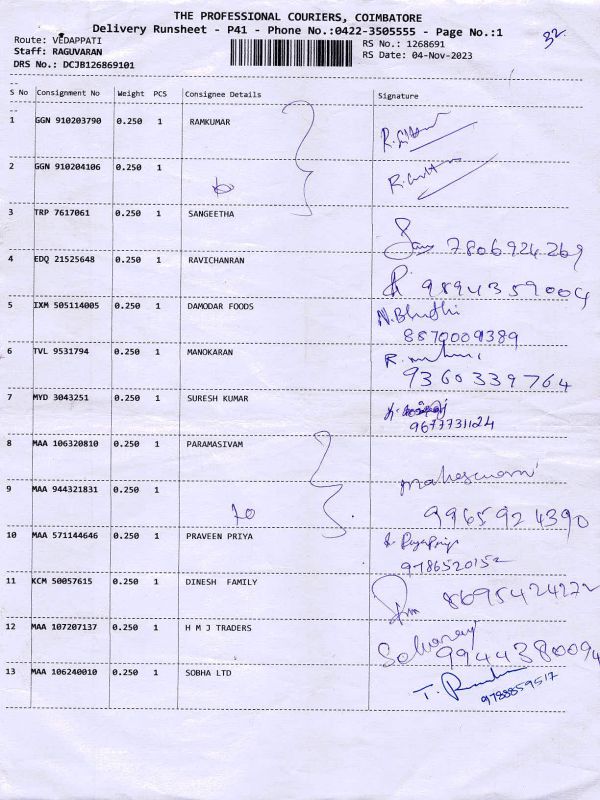 THE PROFESSIONAL COURIERS, COIMBATORE
Delivery Runsheet - P41 - Phone No.:0422-3505555 - Page No.:1
32
Route: VEDAPPATI
RS No.: 1268691
Staff: RAGUVARAN
RS Date: 04-Nov-2023
DRS No.: DCJB126869101
S No Consignment No Weight PCS Consignee Details Signature
1 GGN 910203790 0.250 1 RAMKUMAR
2 GGN 910204106 0.250 1
3 TRP 7617061 0.250 1 SANGEETHA 7806924269
4 EDQ 21525648 0.250 1 RAVICHANRAN 9894359004
5 IXM 505114005 0.250 1 DAMODAR FOODS
8870009389
6 TVL 9531794 0.250 1 MANOKARAN
9360339764
7 MYD 3043251 0.250 1 SURESH KUMAR
9677731124
8 MAA 106320810 0.250 1 PARAMASIVAM
9 MAA 944321831 0.250 1 9965924390
10 MAA 571144646 0.250 1 PRAVEEN PRIYA
9786520152
11 KCM 50057615 0.250 1 DINESH FAMILY 8695424272
12 MAA 107207137 0.250 1 H M J TRADERS
9944380094
13 MAA 106240010 0.250 1 SOBHA LTD
9788859517